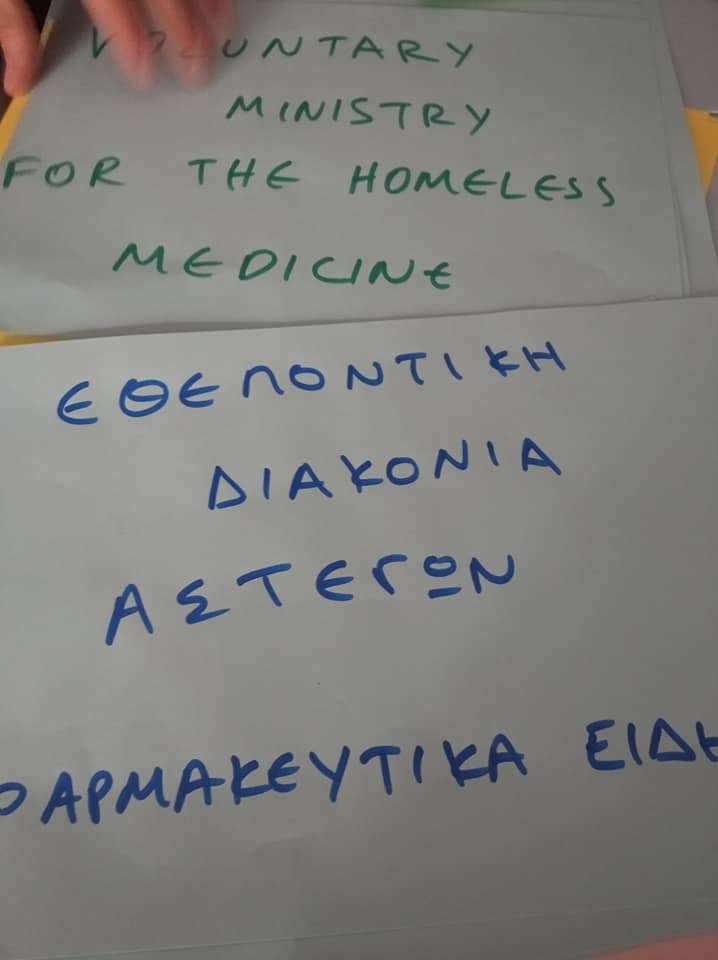 VOLUNTARY
MINISTRY
FOR THE HOMELESS
MEDICINE
ΕΘΕΛΟΝΤΙΚΗ
ΔΙΑΚΟΝΙΑ
ΑΣΤΕΓΩΝ
ΦΑΡΜΑΚΕΥΤΙΚΑ ΕΙΔΗ